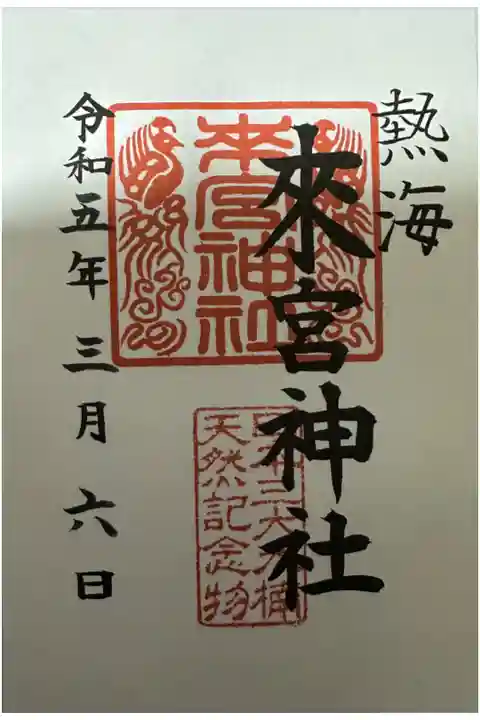 熱海
來宮神社
来宮神社
日本三大大楠
天然記念物
令和五年 三月 六日